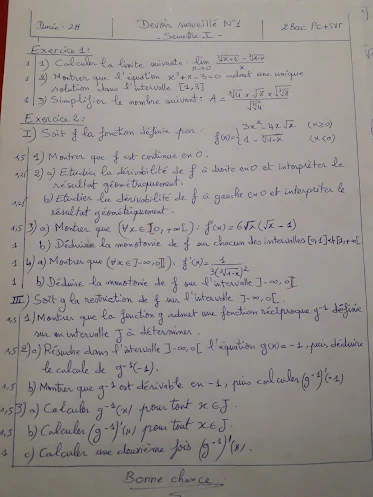 Durée : 2H
Devoir surveillé N°1
- Semestre I -
2Bac PC+SVT
Exercice 1 :
1 1) Calculer la limite suivante : lim x→0
1 2) Montrer que l'équation x³+x-3=0 admet une unique
solution dans l'intervalle [1,3]
1 3) Simplifier le nombre suivant : A =
Exercice 2 :
I) Soit f la fonction définie par : f(x)= { 3x²-4x√x (x≥0)
1-∛(1-x) (x<0)
1,5 1) Montrer que f est continue en 0.
1,5 2) a) Etudier la dérivabilité de f à droite en 0 et interpréter le
résultat géométriquement.
b) Etudier la dérivabilité de f à gauche en 0 et interpréter le
résultat géométriquement.
1,5 3) a) Montrer que (∀x∈]0,+∞[) : f'(x)=6√x(√x-1)
1 b) Déduire la monotonie de f sur chacun des intervalles [0,1] et [1,+∞[
1 4) a) Montrer que (∀x∈]-∞,0[) : f'(x)= 1/3(∛(1-x))²
1 b) Déduire la monotonie de f sur l'intervalle ]-∞,0[
II) Soit g la restriction de f sur l'intervalle ]-∞,0[.
1,5 1) Montrer que la fonction g admet une fonction réciproque g⁻¹ définie
sur un intervalle J à déterminer.
1,5 2) a) Résoudre dans l'intervalle ]-∞,0[ l'équation g(x)=-1, puis déduire
le calcule de g⁻¹(-1).
1,5 b) Montrer que g⁻¹ est dérivable en -1, puis calculer (g⁻¹)'(-1)
1,5 3) a) Calculer g⁻¹(x) pour tout x∈J.
1,5 b) Calculer (g⁻¹)'(x) pour tout x∈J.
1 c) Calculer une deuxième fois (g⁻¹)'(x).
Bonne chance